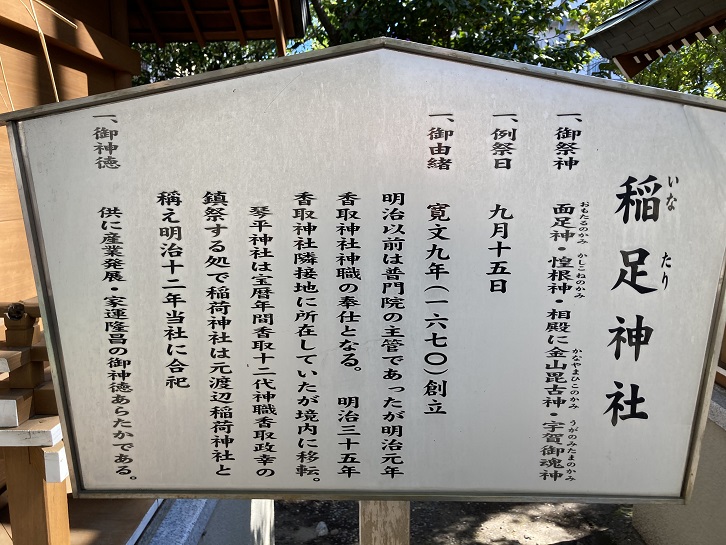 稲足神社
いな たり
一、御祭神 面足神・惶根神・相殿に金山毘古神・宇賀御魂神
おもたるのかみ かしこねのかみ かなやまひこのかみ うがのみたまのかみ
一、例祭日 九月十五日
一、御由緒 寛文九年(一六七〇)創立
明治以前は普門院の主管であったが明治元年
香取神社神職の奉仕となる。 明治三十五年
香取神社隣接地に所在していたが境内に移転。
琴平神社は宝暦年間香取十二代神職香取政幸の
鎮祭する処で稲荷神社は元渡辺稲荷神社と
称え明治十二年当社に合祀
一、御神徳 供に産業発展・家運隆昌の御神徳あらたかである。